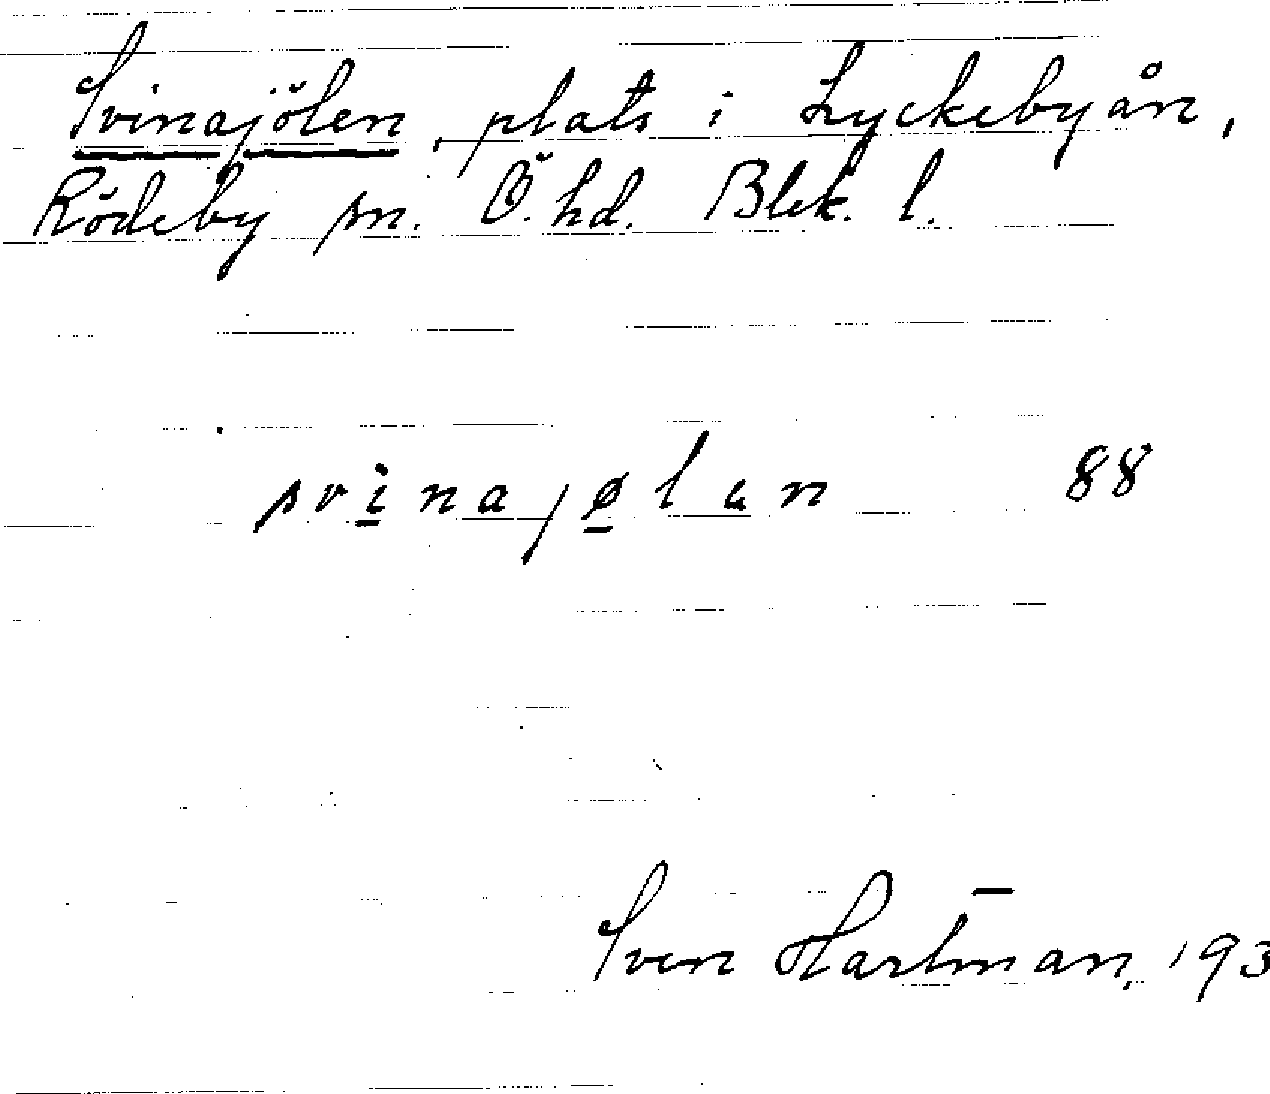 Svinajölen, plats i Lyckebyån,
Rödeby sn. Ö. hd. Blek. l.
svinajølan 88
Sven Hartman, 193